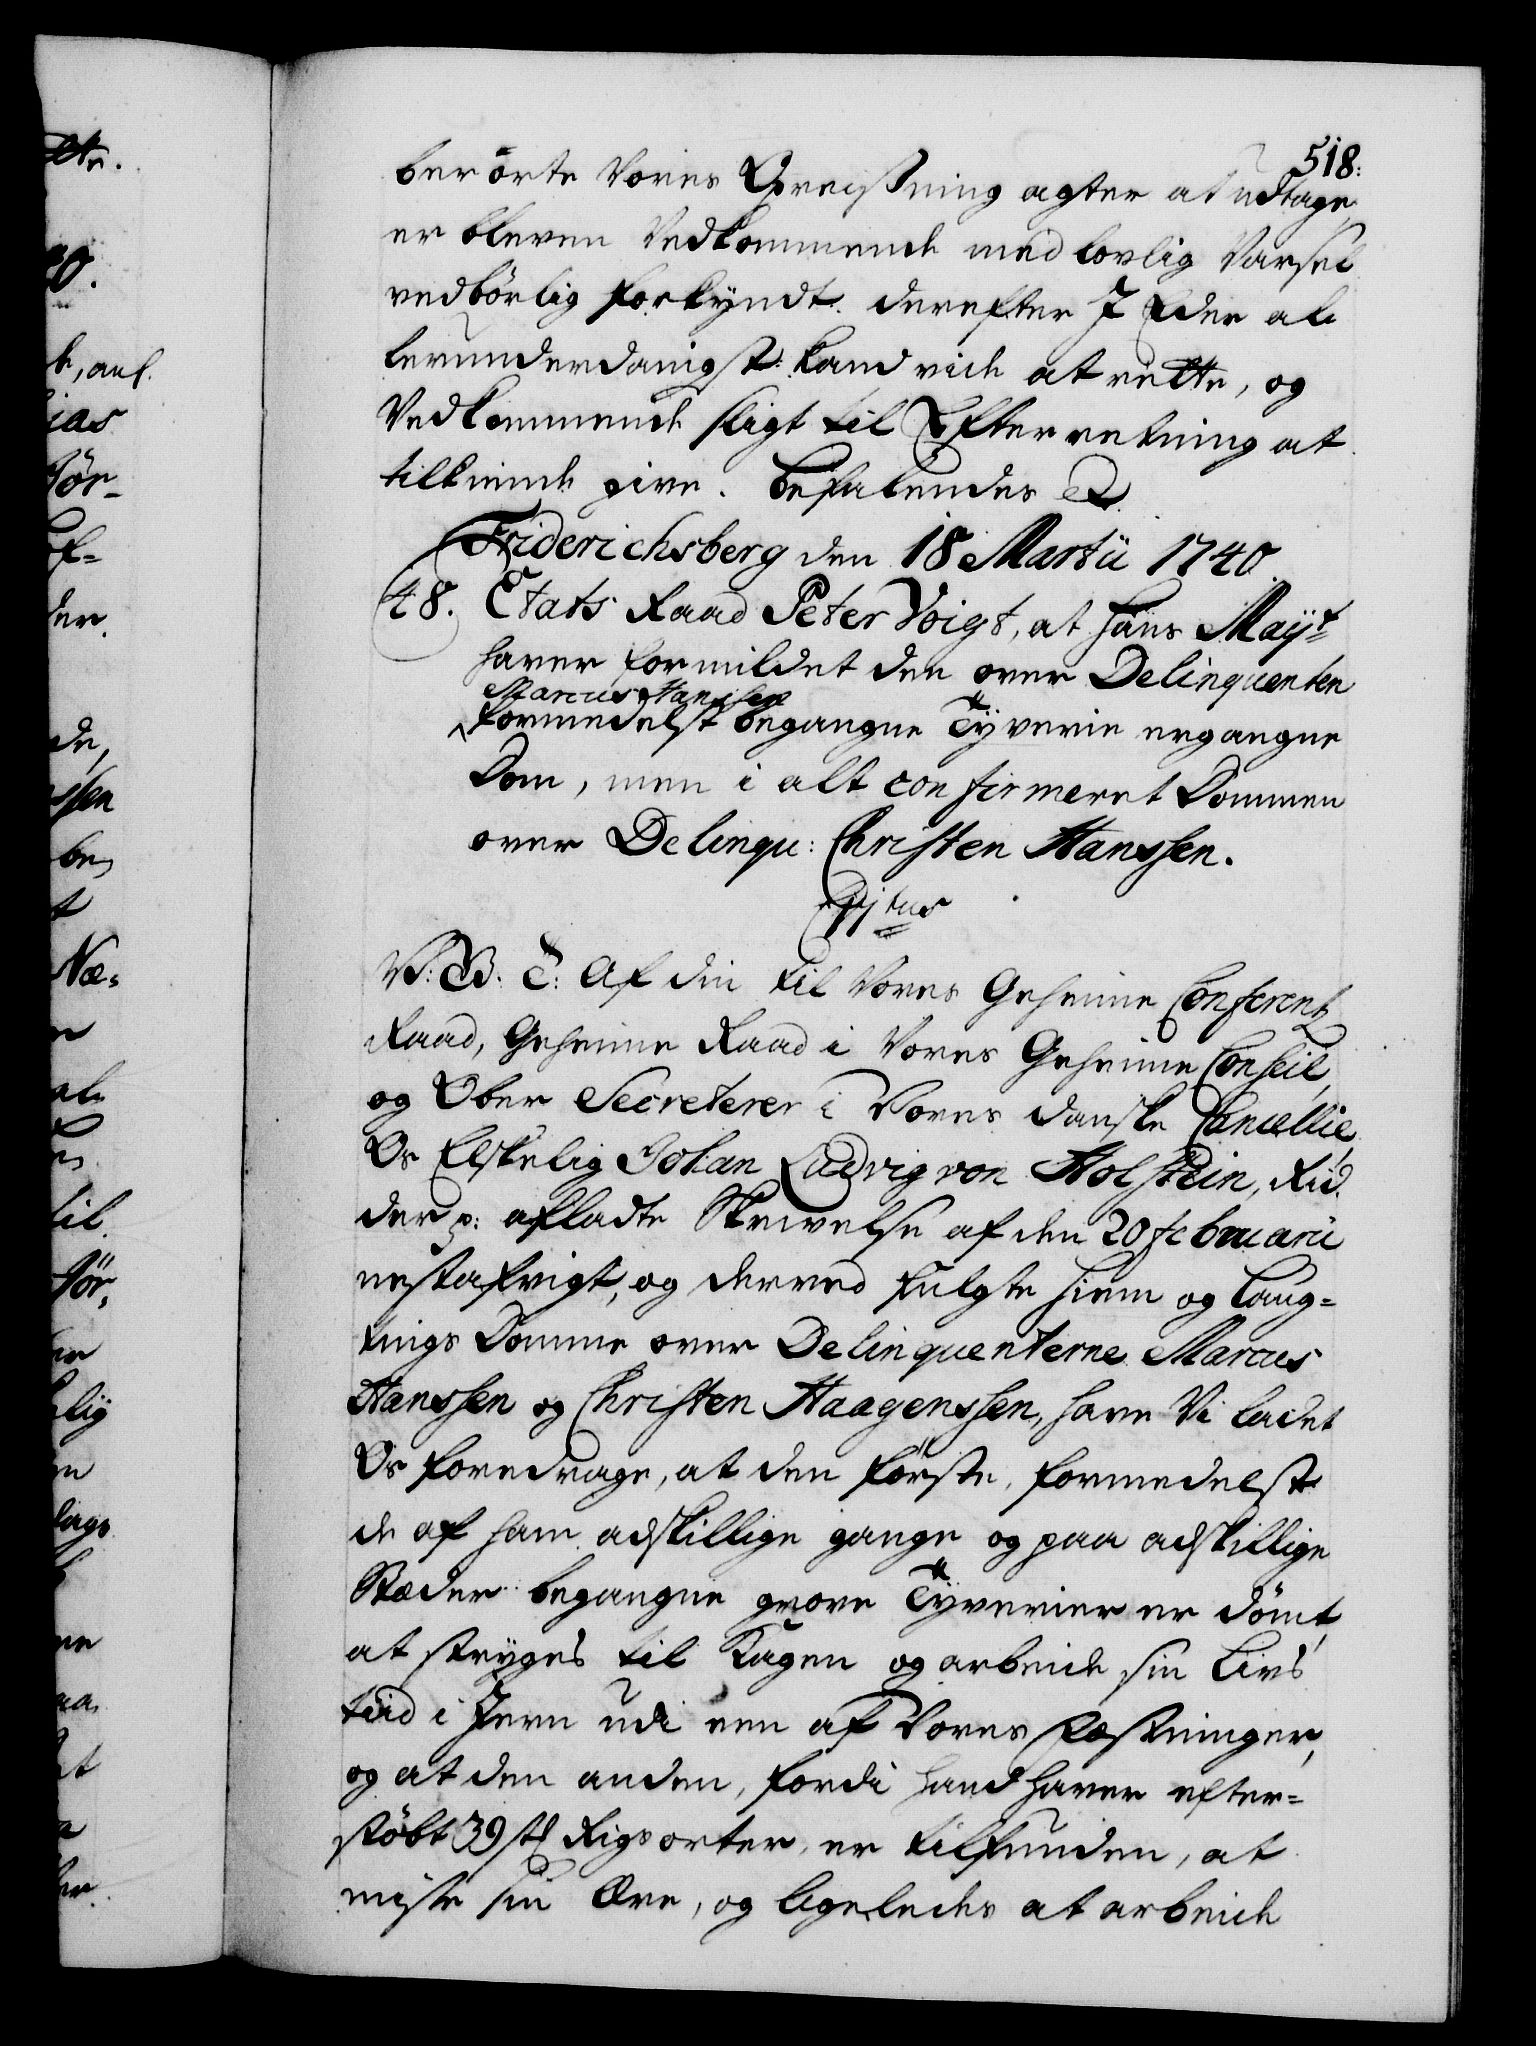 518:
berörte Vores Opreisning agter at udtage,
er bleven Vedkommende med lovlig Varsel
vedbörlig forkyndt. derefter I Eder al-
lerunderdanigst kand vide at rette, og
Vedkommende sligt til Efterretning at
tilkiende give. Befalendes
Friderichsberg den 18 Martii 1740.
48. Etats Raad Peter Voigt, at Hans Mayt
haver formildet den over Delinquenten
Marcus Hanssen
formedelst begangne Tyverie ergangne
Dom, men i alt confirmeret Dommen
over Delinqu: Christen Hanssen.
V. G. T: Af din til Vores Geheime Conferentz
Raad, Geheime Raad i Vores Geheime Conseil,
og Ober Secreterer i Vores danske Cancellie,
Os Elskelig Johan Ludvig von Holstein, Rid-
der p: afladte Skrivelse af den 20 februarii
nestafvigt, og derved fulgte Hiem og Laug-
tings Domme over Delinquenterne Marcus
Hanssen og Christen Haagenssen, have Vi ladet
Os foredrage, at den förste, formedelst
de af ham adskillige gange og paa adskillige
Stæder begangne grove Tyverier er dömt,
at stryges til Kagen og arbeide sin Livs
tiid i Jern udi een af Vores Fæstninger,
og at den anden, fordi hand haver efter-
stöbt 39 st Rigsorter, er tilfunden, at
miste sin Ære, og ligeledes at arbeide